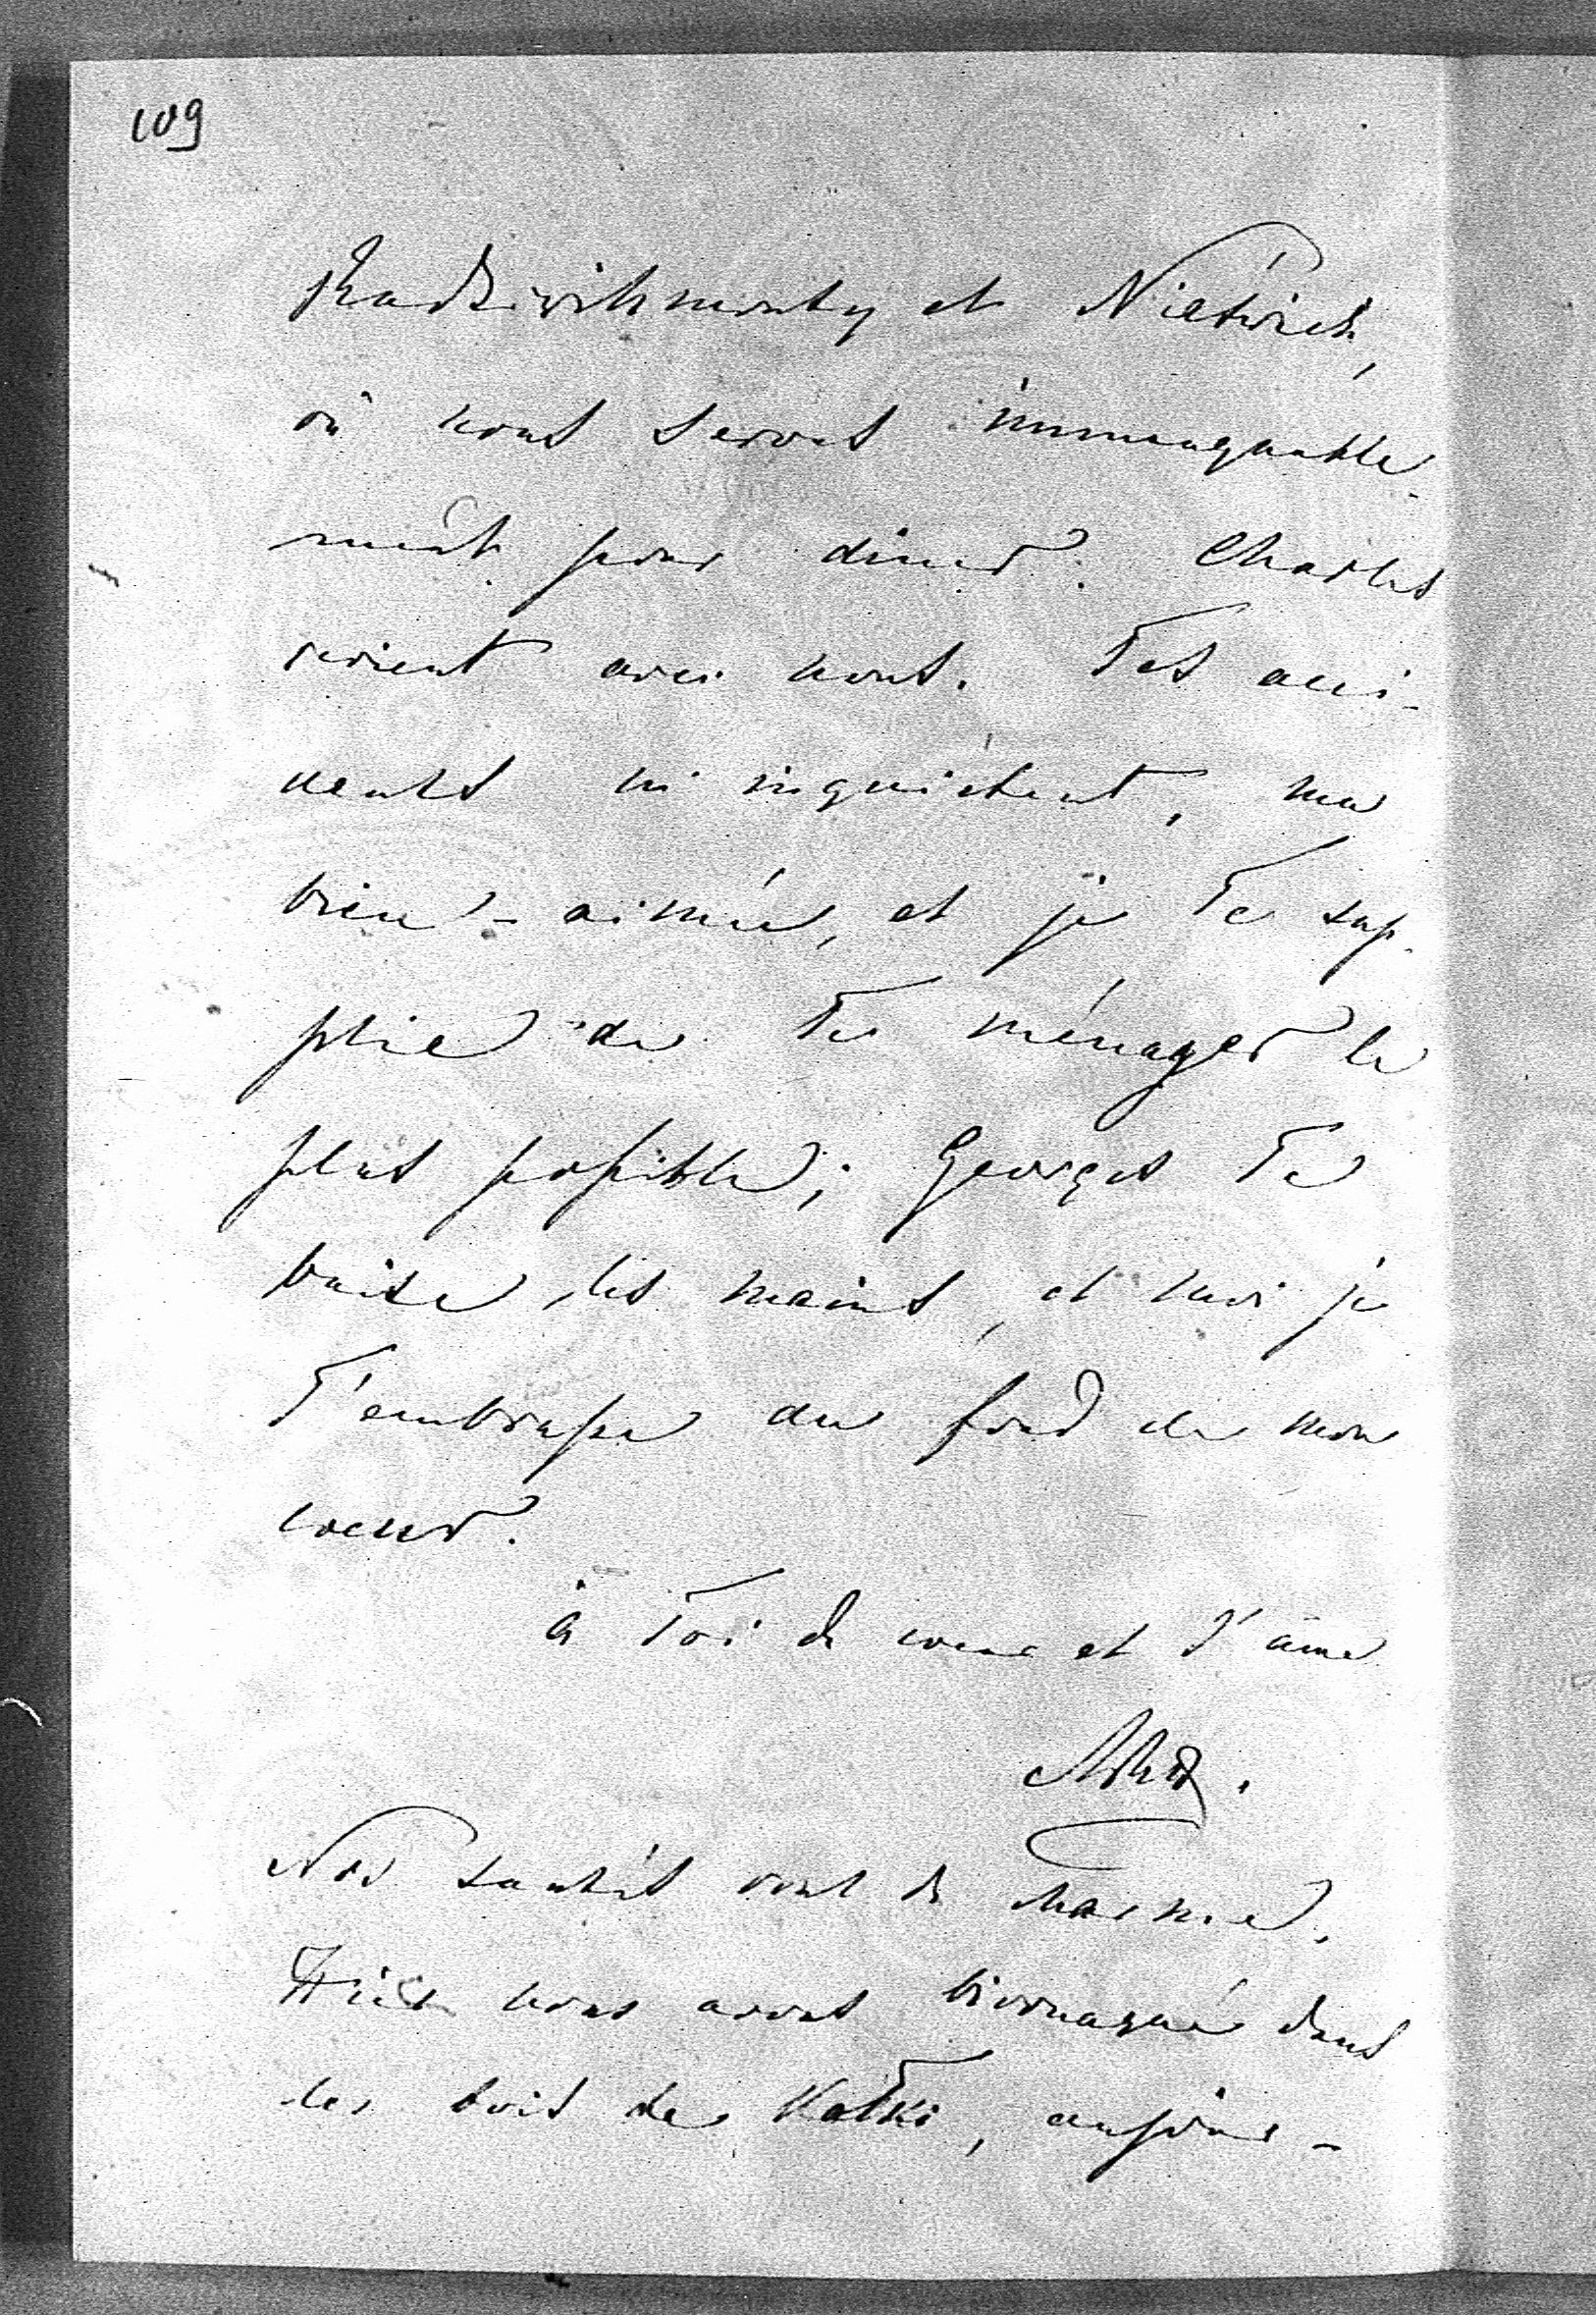 109
Radziwiłłmonty et Nieśwież,
où nous serons immanquable-
ment pour diner. Charles
revient avec nous. Tes acci-
dents m'inquiètent, ma
bien-aimée, et je Te sup-
plie de Te ménager le
plus possible; Georges Te
baise les mains, et moi je
T'embrasse du fond de mon
coeur.
à Toi de coeur et d'âme
Nos santés vont de même.
Hier nous avons bivouaqué dans
les bois de Kotki, aujour-